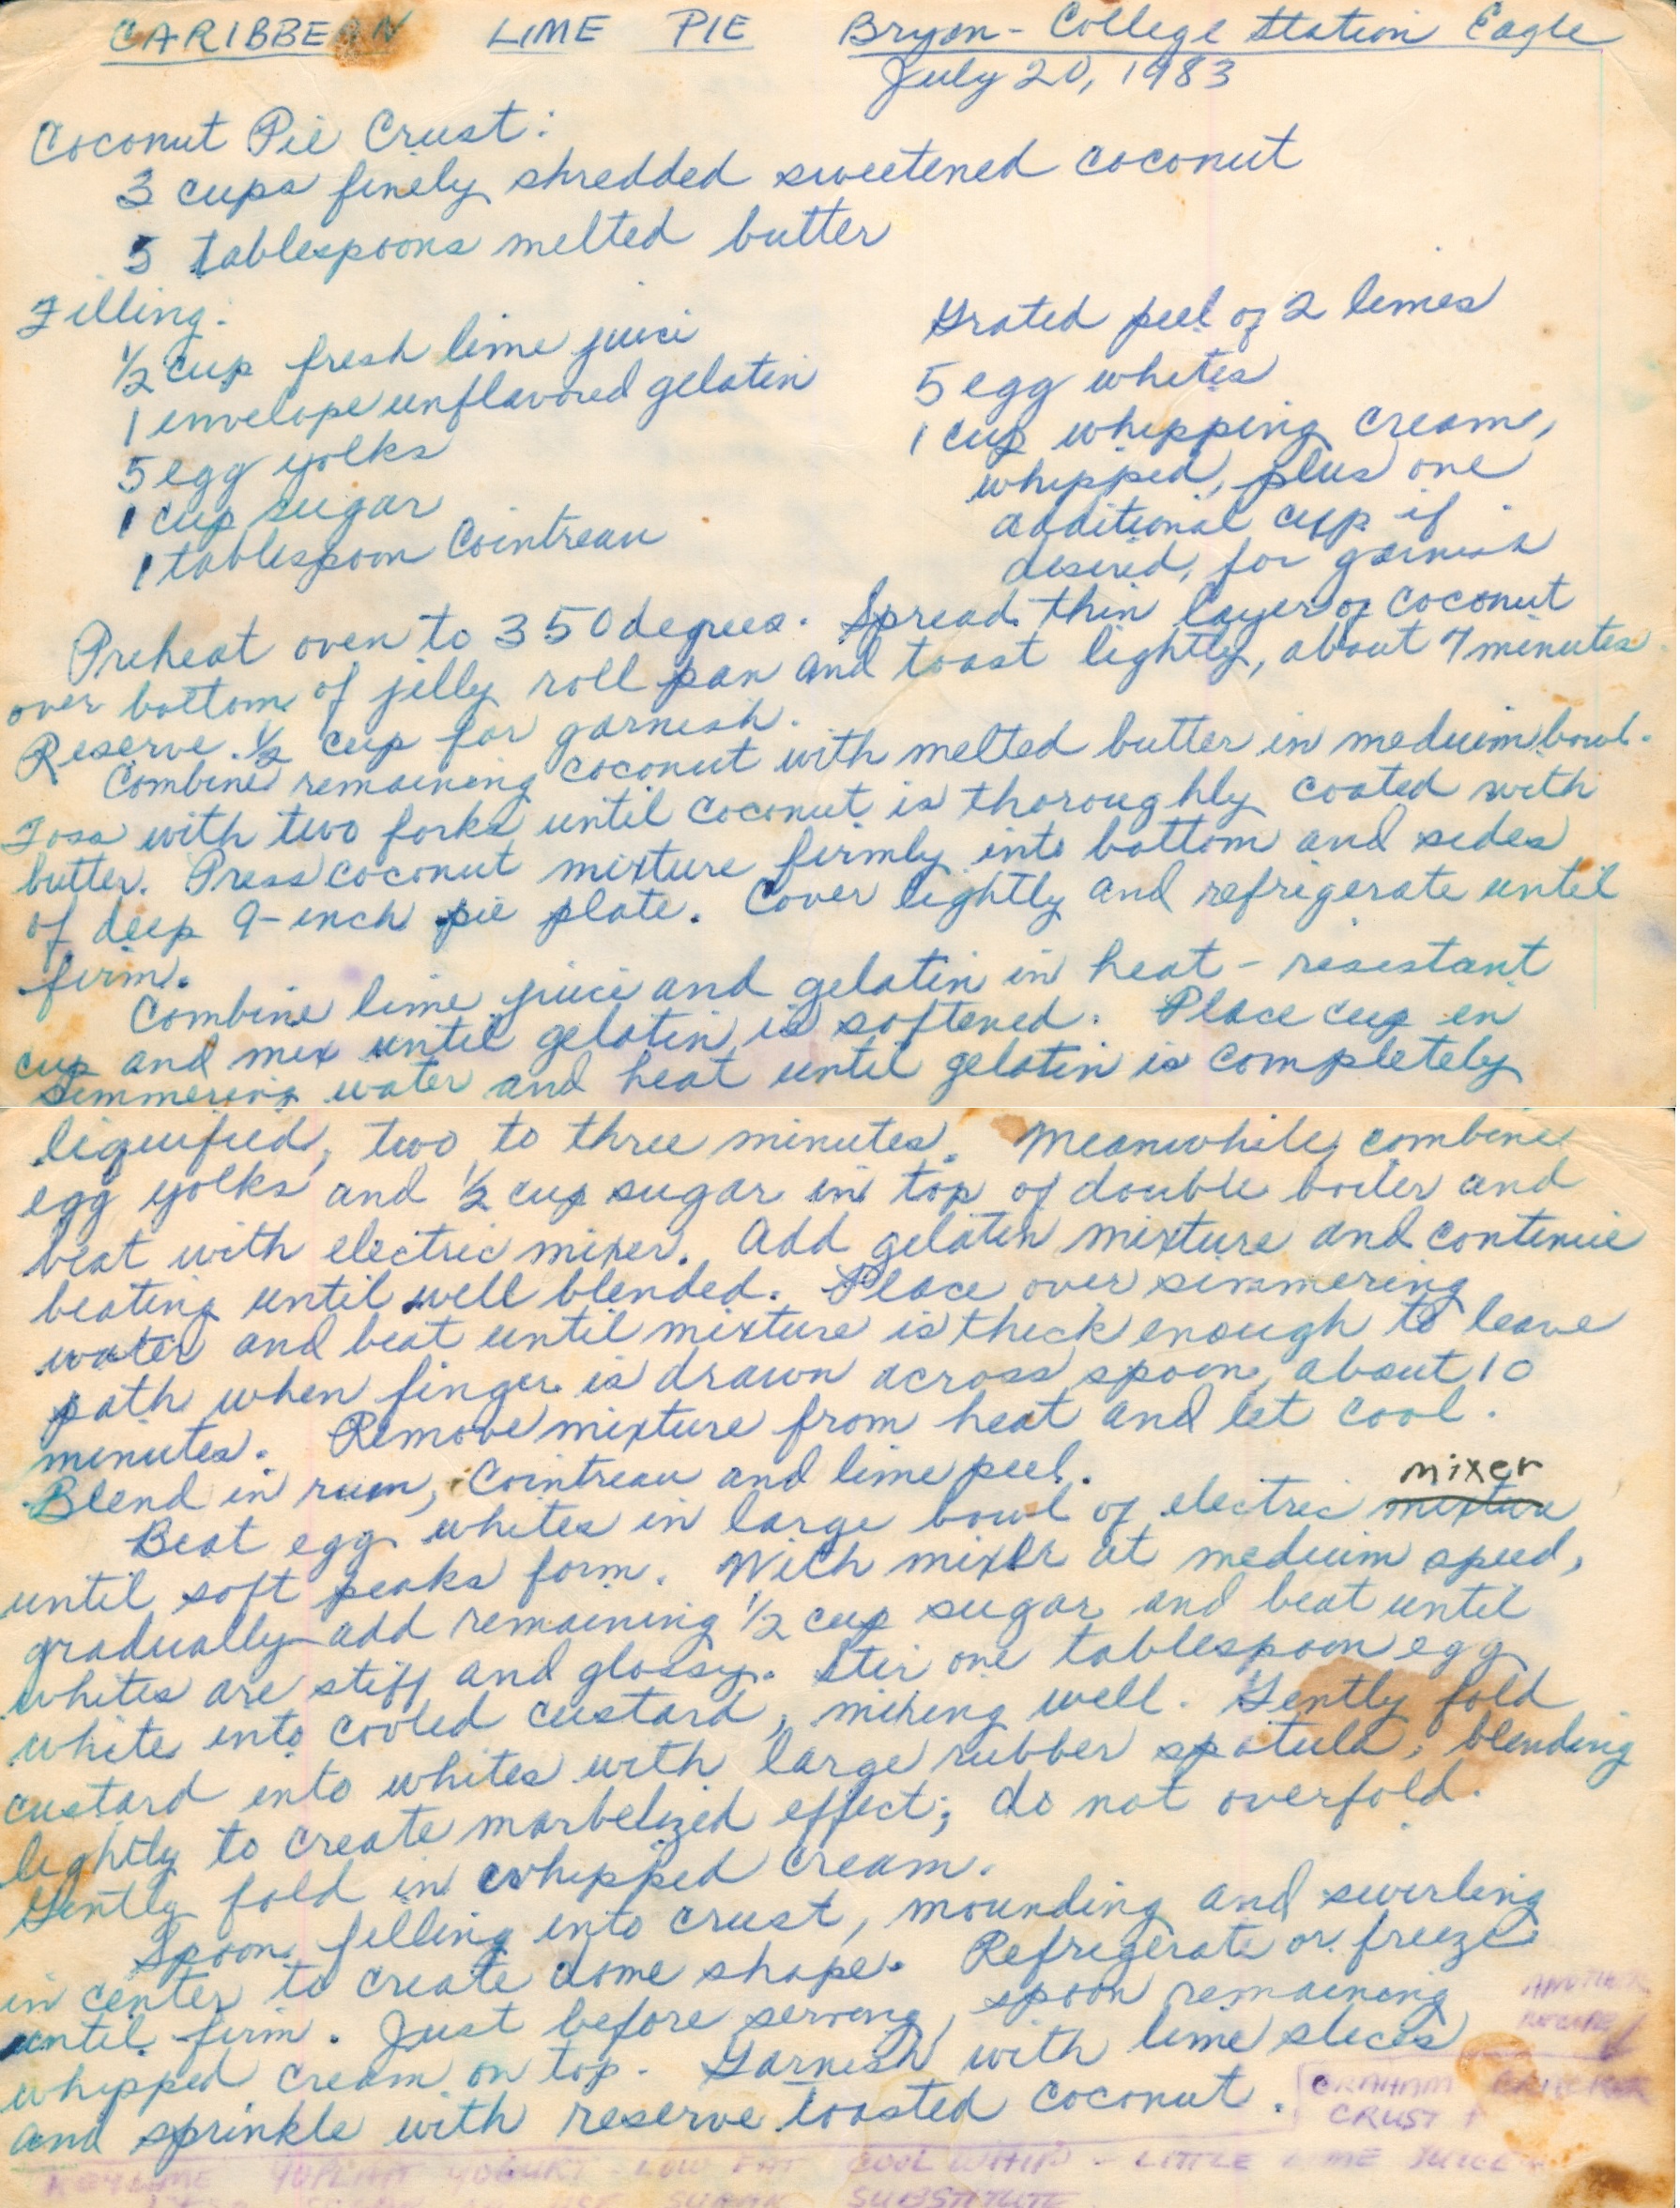 CARIBBEAN LIME PIE Bryan-College Station Eagle
July 20, 1983
Coconut Pie Crust:
3 cups finely shredded sweetened coconut
5 tablespoons melted butter
Filling:
1/2 cup fresh lime juice
1 envelope unflavored gelatin
5 egg yolks
1 cup sugar
1 tablespoon Cointreau
Grated peel of 2 limes
5 egg whites
1 cup whipping cream,
whipped, plus one
additional cup if
desired, for garnish
Preheat oven to 350 degrees. Spread thin layer of coconut
over bottom of jelly roll pan and toast lightly, about 7 minutes
Reserve 1/2 cup for garnish.
Combine remaining coconut with melted butter in meduim bowl.
Toss with two forks until coconut is thoroughly coated with
butter. Press coconut mixture firmly into bottom and sides
of deep 9-inch pie plate. Cover lightly and refrigerate until
firm.
Combine lime juice and gelatin in heat-resistant
cup and mix until gelatin is softened. Place cup in
simmering water and heat until gelatin is completely
liquified, two to three minutes. Meanwhile, combine
egg yolks and 1/2 cup sugar in top of double boiler and
beat with electric mixer. Add gelatin mixture and continue
beating until well blended. Place over simmering
water and beat until mixture is thick enough to leave
path when finger is drawn across spoon, about 10
minutes. Remove mixture from heat and let cool.
Blend in rum, Cointreau and lime peel.
mixer
Beat egg whites in large bowl of electric mixture
until soft peaks form. With mixer at meduim speed,
gradually add remaining 1/2 cup sugar and beat until
whites are stiff and glossy. Stir one tablespoon egg
white into cooled custard, mixing well. Gently fold
custard into whites with large rubber spatula, blending
lightly to create marbelized effect; do not overfold.
Gently fold in whipped cream.
Spoon filling into crust, mounding and swirling
in center to create dome shape. Refrigerate or freeze
until firm. Just before serving, spoon remaining
whipped cream on top. Garnish with lime slices
and sprinkle with reserve toasted coconut.
ANOTHER
RECIPE
GRAHAM CRACKER
CRUST +
KEY LIME YOPLAIT YOGURT - LOW FAT COOL WHIP - LITTLE LIME JUICE
SUGAR SUBSTITUTE